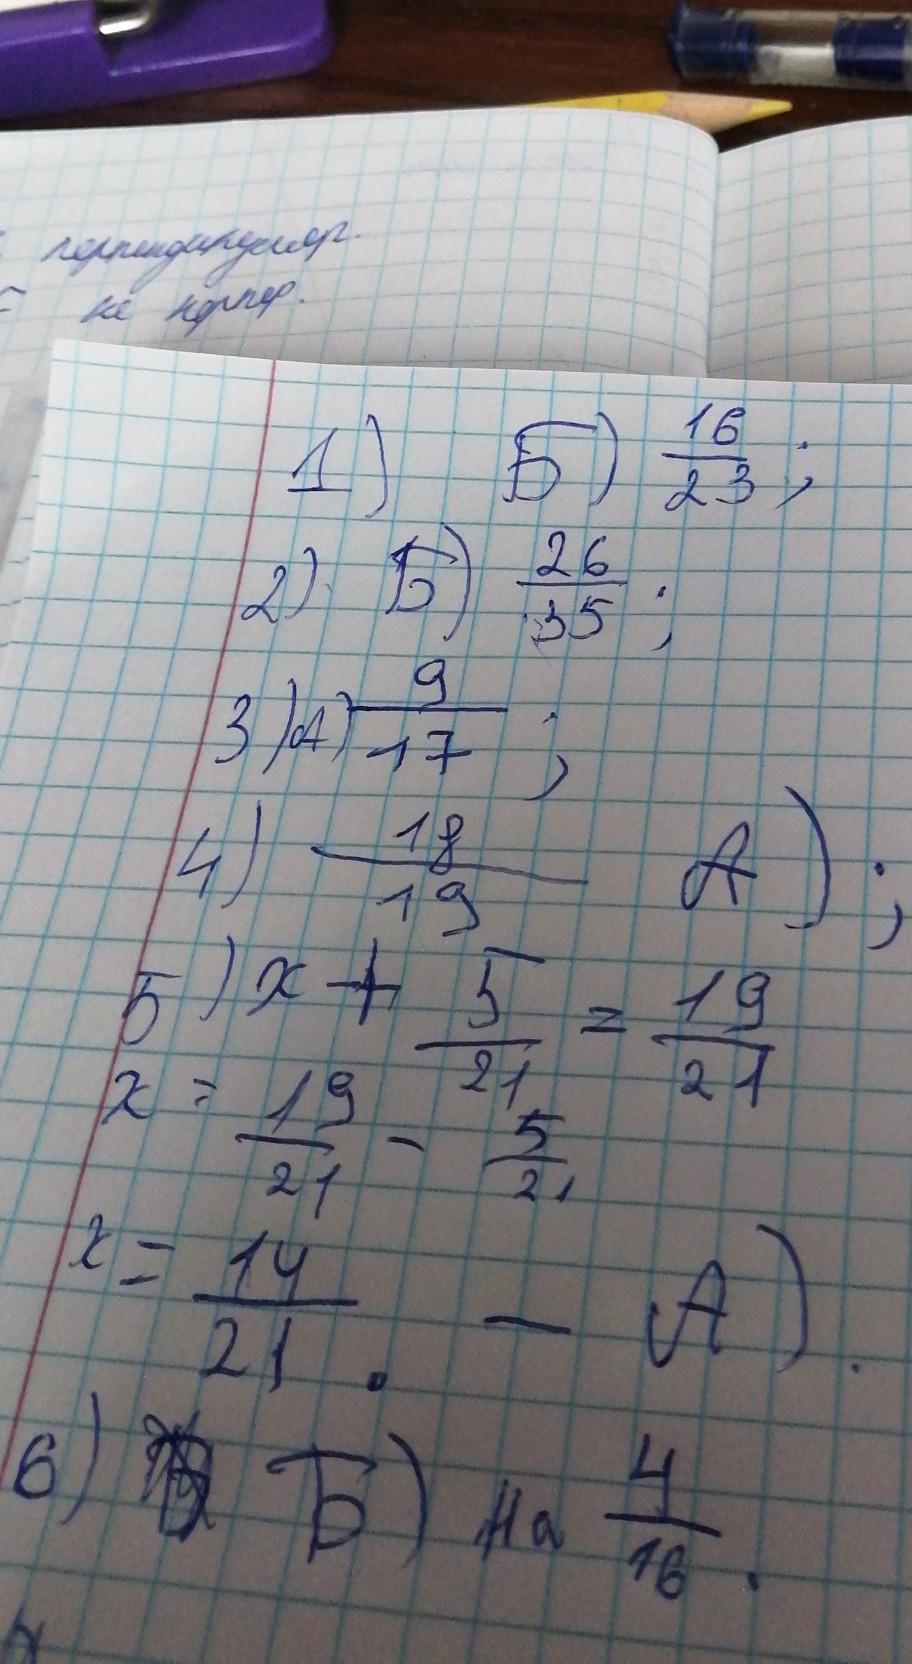 перпендикуляр.
не перпер.
1) Б) 16/23;
2) Б) 26/35;
3) А) 9/17;
4) 18/19 А);
5) x + 5/21 = 19/21
x = 19/21 - 5/21
x = 14/21. - А).
6) Б) на 4/16.